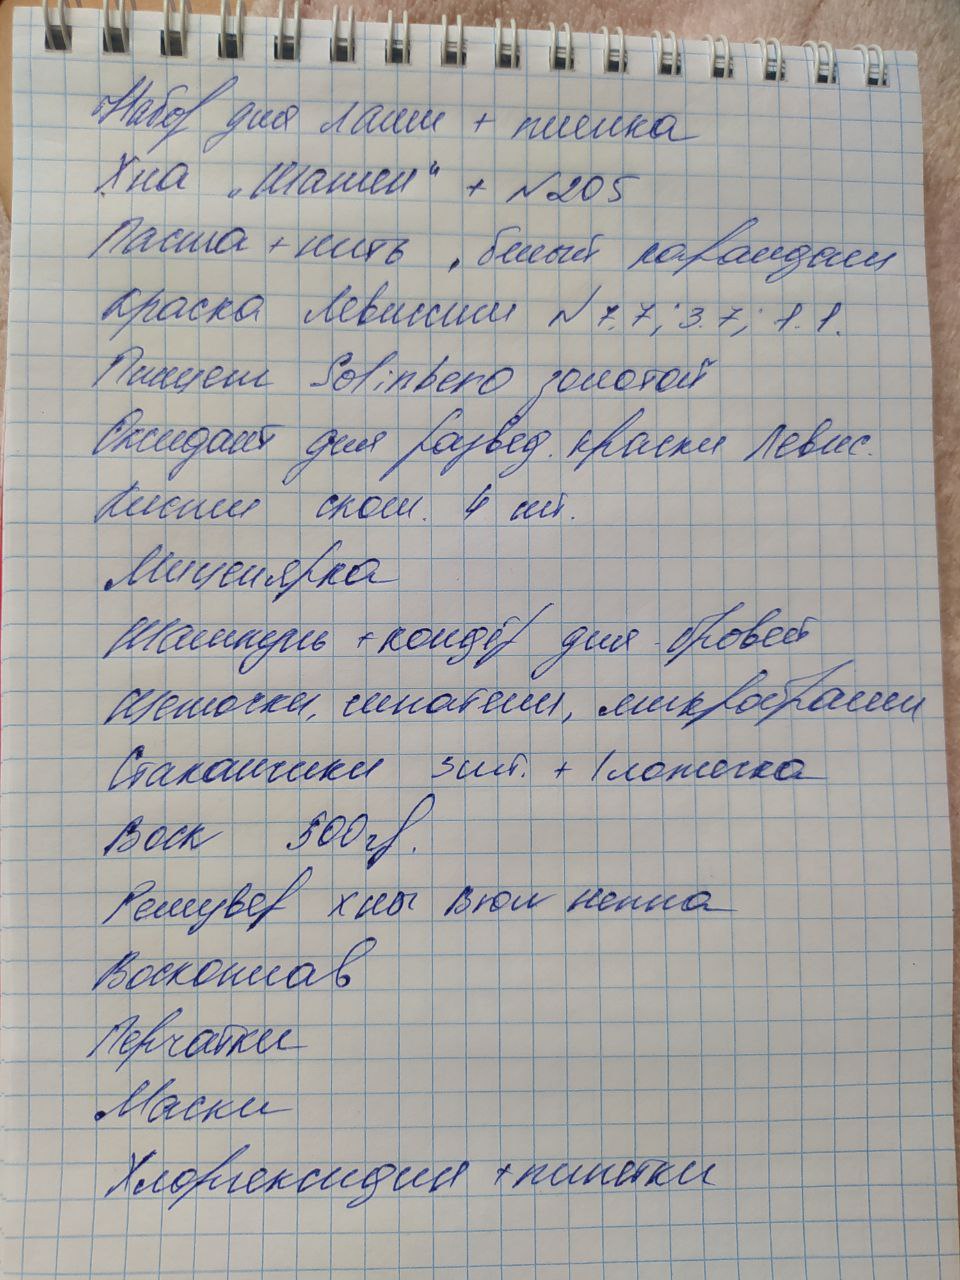 Набор для лами + пленка
Хна „Шамси" + №205
Паста + нить, белый карандаш
Краска Левиссим №7.7; 3.7; 1.1.
Пинцет Solinberg золотой
Оксидант для развед. краски Левис.
Кисти скош. 4 шт.
Мицеллярка
Шампунь + кондёр для бровей
Щеточки, шпатели, микробраши
Стаканчики 3шт. + 1 ложечка
Воск 500гр.
Ремувер хны Вюм хенна
Воскоплав
Перчатки
Маски
Хлоргексидин + пипетки